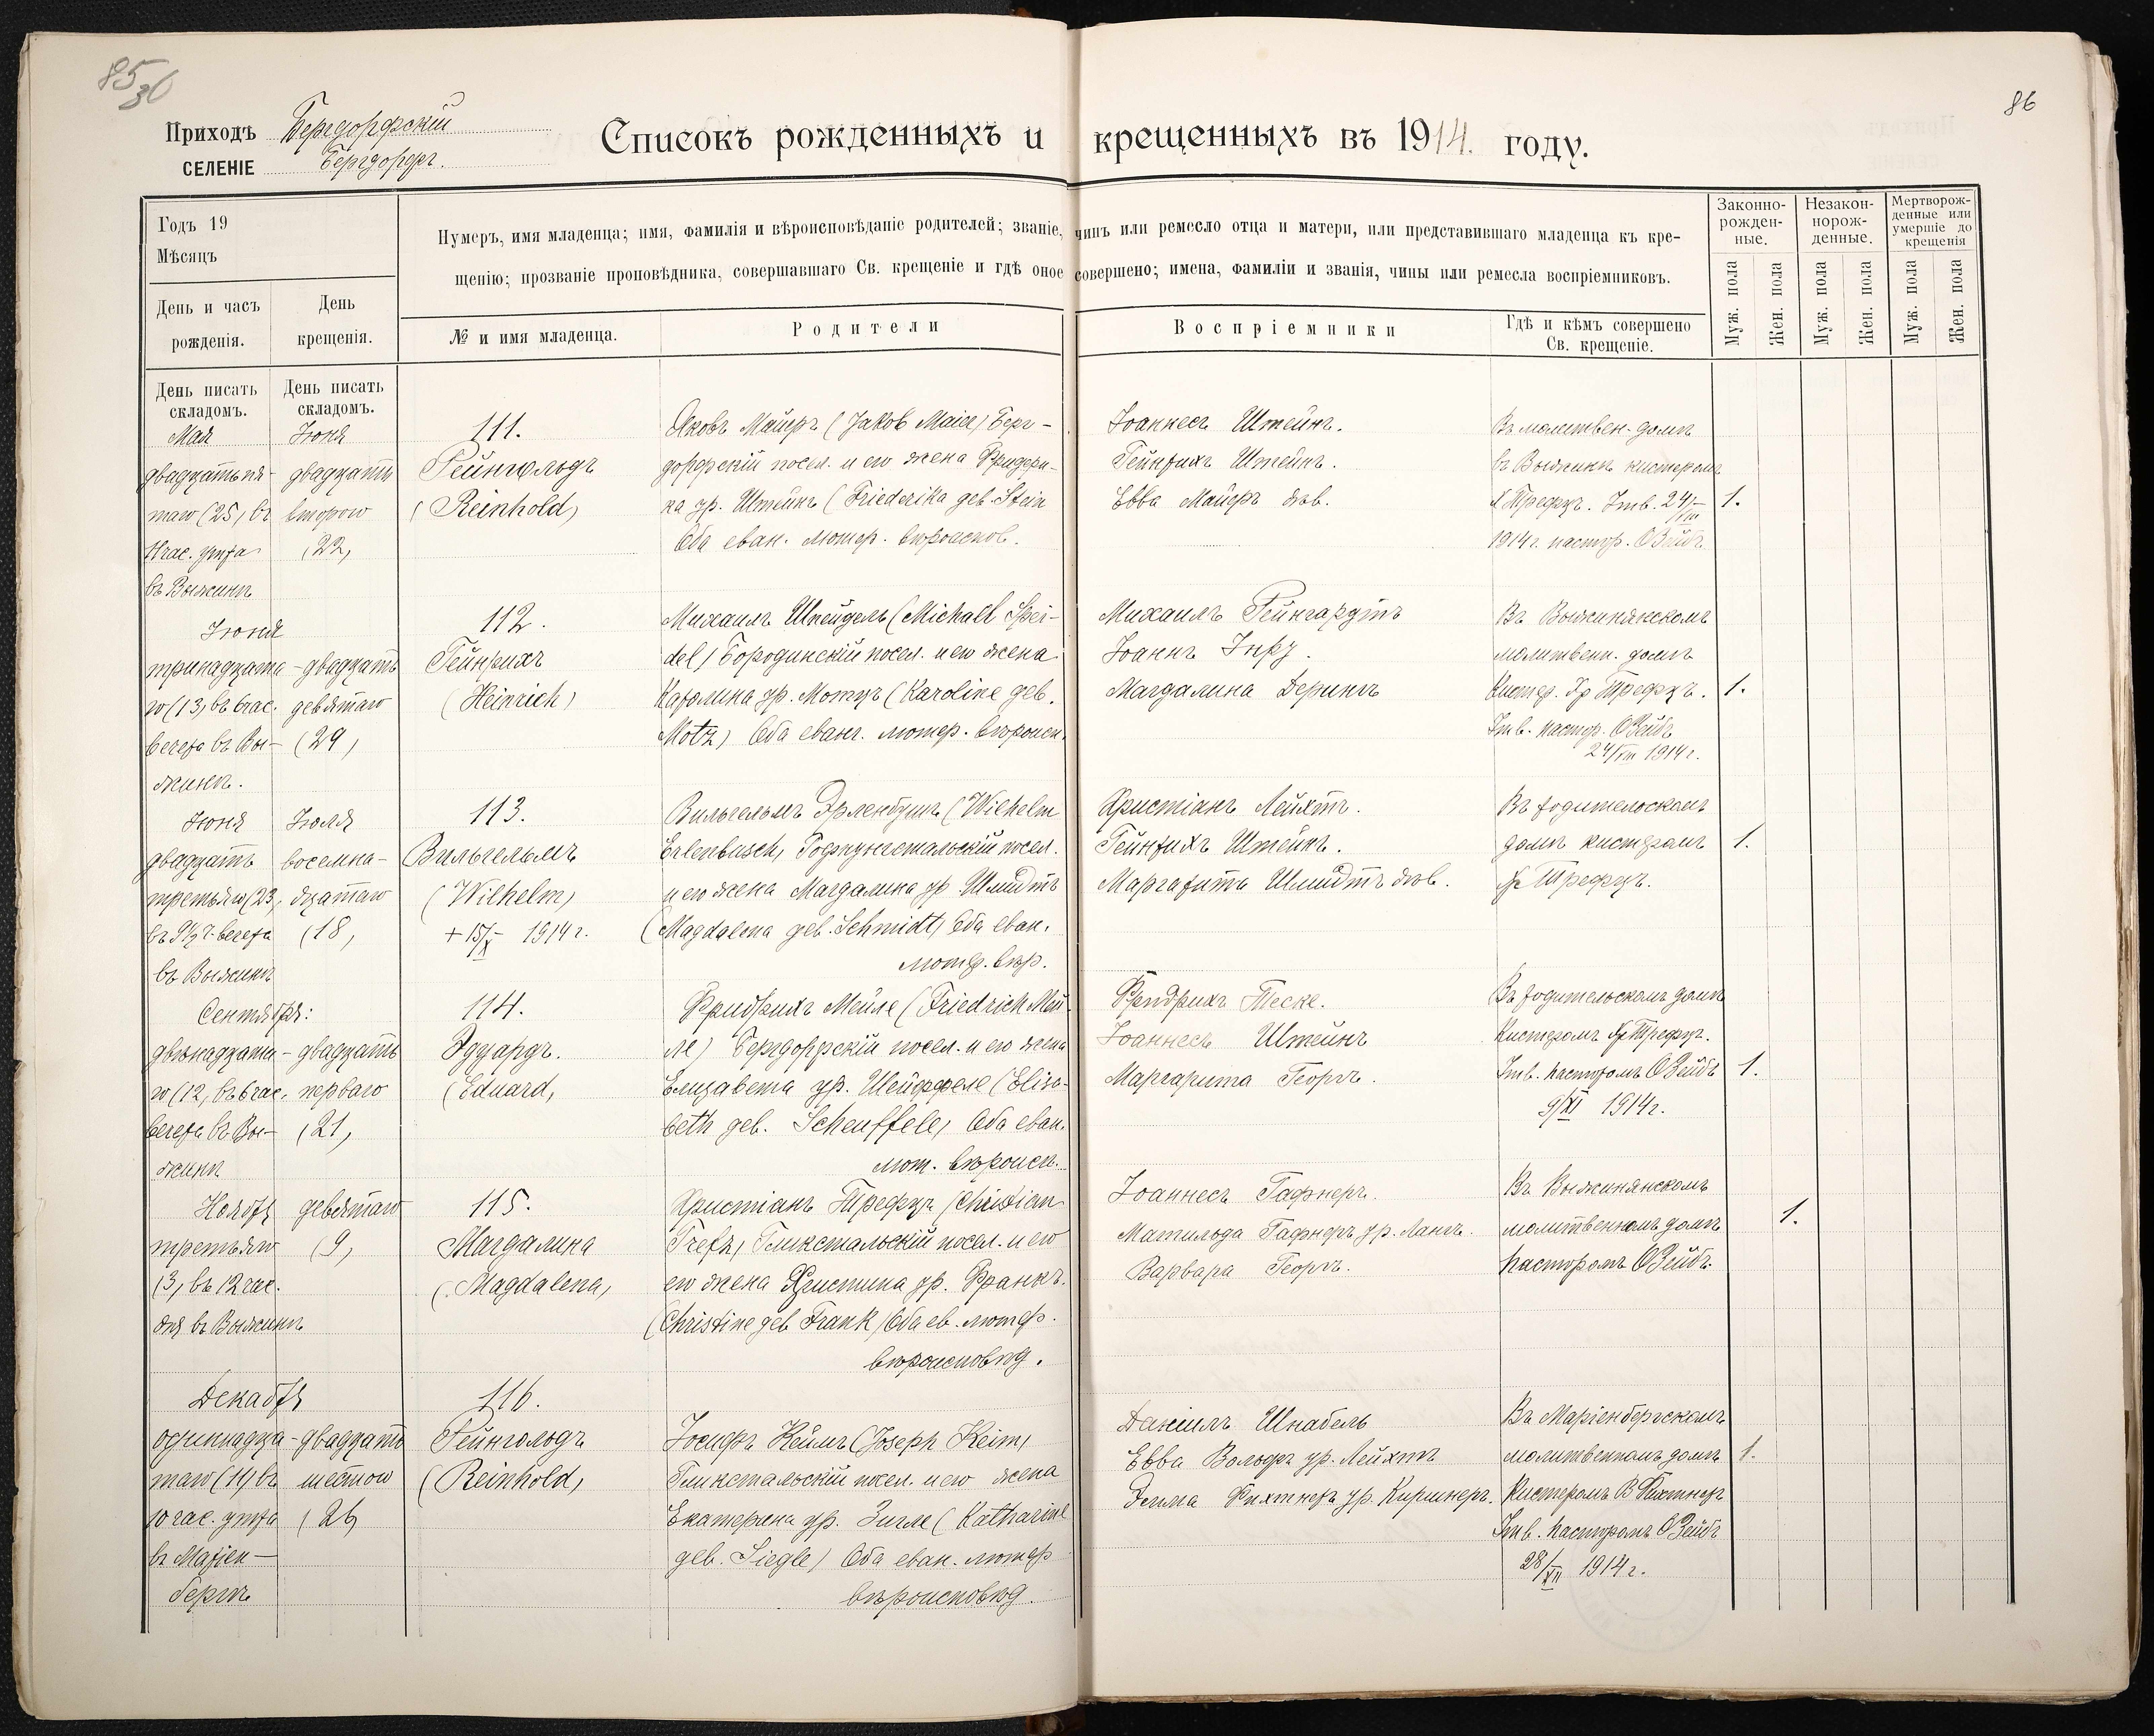 85
36
86
Приходъ Бергдорфскій
СЕЛЕНІЕ Бергдорфъ.
Списокъ рожденныхъ и крещенныхъ въ 1914. году.
Годъ 19
Мѣсяцъ
День и часъ рожденія.
День крещенія.
Нумеръ, имя младенца; имя, фамилія и вѣроисповѣданіе родителей; званіе, чинъ или ремесло отца и матери, или представившаго младенца къ кре-
щенію; прозваніе проповѣдника, совершавшаго Св. крещеніе и гдѣ оное совершено; имена, фамиліи и званія, чины или ремесла воспріемниковъ.
№ и имя младенца.
Родители
Воспріемники
Гдѣ и кѣмъ совершено
Св. крещеніе.
Законно-
рожден-
ные.
Незакон-
норож-
денные.
Мертворож-
денные или
умершіе до
крещенія
Муж. пола
Жен. пола
Муж. пола
Жен. пола
Муж. пола
Жен. пола
День писать
складомъ.
День писать
складомъ.
Мая
двадцать пя-
таго (25) въ
час. утра
въ Выжинѣ
Іюня
двадцать
второго
(22)
111.
Рейнгольдъ
(Reinhold)
Яковъ Майеръ (Jakob Maier) Берг-
дорфскій посел. и его жена Фридери-
ка ур. Штейнъ (Friederika geb. Stein
Оба еван. лютер. вѣроиспов.
Іоаннесъ Штейнъ.
Гейнрихъ Штейнъ.
Евва Майеръ дѣв.
Въ молитвен. домѣ
въ Выжинѣ кистеромъ
Трефцъ. Утв. 24/VIII
1914 г. пастор. О Зейбъ
1.
Іюня
тринадцата-
го (13) въ час.
вечера въ Вы-
жинѣ.
двадцать
девятаго
(29)
112.
Гейнрихъ
(Heinrich)
Михаилъ Шпейдель (Michael Spei-
del) Бородинскій посел. и его жена
Каролина ур. Мотцъ (Karoline geb.
Motz) Оба еванг. лютер. вѣроисп.
Михаилъ Рейнгардтъ
Іоаннъ
Магдалина Дерингъ
Въ Выжинянскомъ
молитвенн. домѣ
Кистер. Трефцъ.
Утв. пастор. О Зейбъ
24/VIII 1914 г.
1.
Іюня
двадцать
третьяго (23)
въ 9½ ч. вечера
въ Выжинѣ
Іюля
восемна-
дцатаго
(18)
113.
Вильгельмъ
(Wilhelm)
+ 15/X 1914 г.
Вильгельмъ Эрленбушъ (Wilhelm
Erlenbusch) Гофнунгстальскій посел.
и его жена Магдалина ур. Шмидтъ
(Magdalena geb. Schmidt) Оба еван.
лютер. вѣр.
Христіанъ Лейхтъ.
Гейнрихъ Штейнъ.
Маргарита Шмидтъ дѣв.
Въ родительскомъ
домѣ кистеромъ
Трефцъ.
1.
Сентября:
двѣнадцата-
го (12) въ 6 час.
вечера въ Вы-
жинѣ
двадцать
перваго
(21)
114.
Эдуардъ.
(Eduard)
Фридрихъ Мейле (Friedrich Mei-
le) Бергдорфскій посел. и его жена
Елизавета ур. Шейффеле (Elisa-
beth geb. Scheuffele) Оба еван.
лют. вѣроисп.
Фридрихъ Теске.
Іоаннесъ Штейнъ
Маргарита Георгъ.
Въ родительскомъ домѣ
Кистеромъ Трефцъ.
Утв. пасторомъ О Зейбъ
9/XI 1914 г.
1.
Ноября
третьяго
(3) въ 12 час.
дня въ Выжинѣ
девятаго
(9)
115.
Магдалина
(Magdalena)
Христіанъ Трефцъ (Christian
Trefz) Гликстальскій посел. и его
его жена Христина ур. Франкъ.
(Christine geb Frank) Оба ев. лютер.
вѣроисповѣд.
Іоаннесъ Гафнеръ.
Матильда Гафнеръ ур. Лангъ.
Варвара Георгъ.
Въ Выжинянскомъ
молитвенномъ домѣ
пасторомъ О Зейбъ.
1.
Декабря
одиннадца-
таго (11) въ
10 час. утра
въ Маріен-
бергѣ
двадцать
шестого
(26)
116.
Рейнгольдъ
(Reinhold)
Іосифъ Кеймъ (Joseph Keim)
Гликстальскій посел. и его жена
Екатерина ур. Зигле (Katharine
geb. Siegle) Оба еван. лютер
вѣроисповѣд.
Даніилъ Шнабель
Евва Вольфъ ур. Лейхтъ
Эмма Фихтнеръ ур. Киршнеръ.
Въ Маріенбергскомъ
молитвенномъ домѣ
Кистеромъ В Фихтнеръ
Утв. пасторомъ О Зейбъ
28/XII 1914 г.
1.